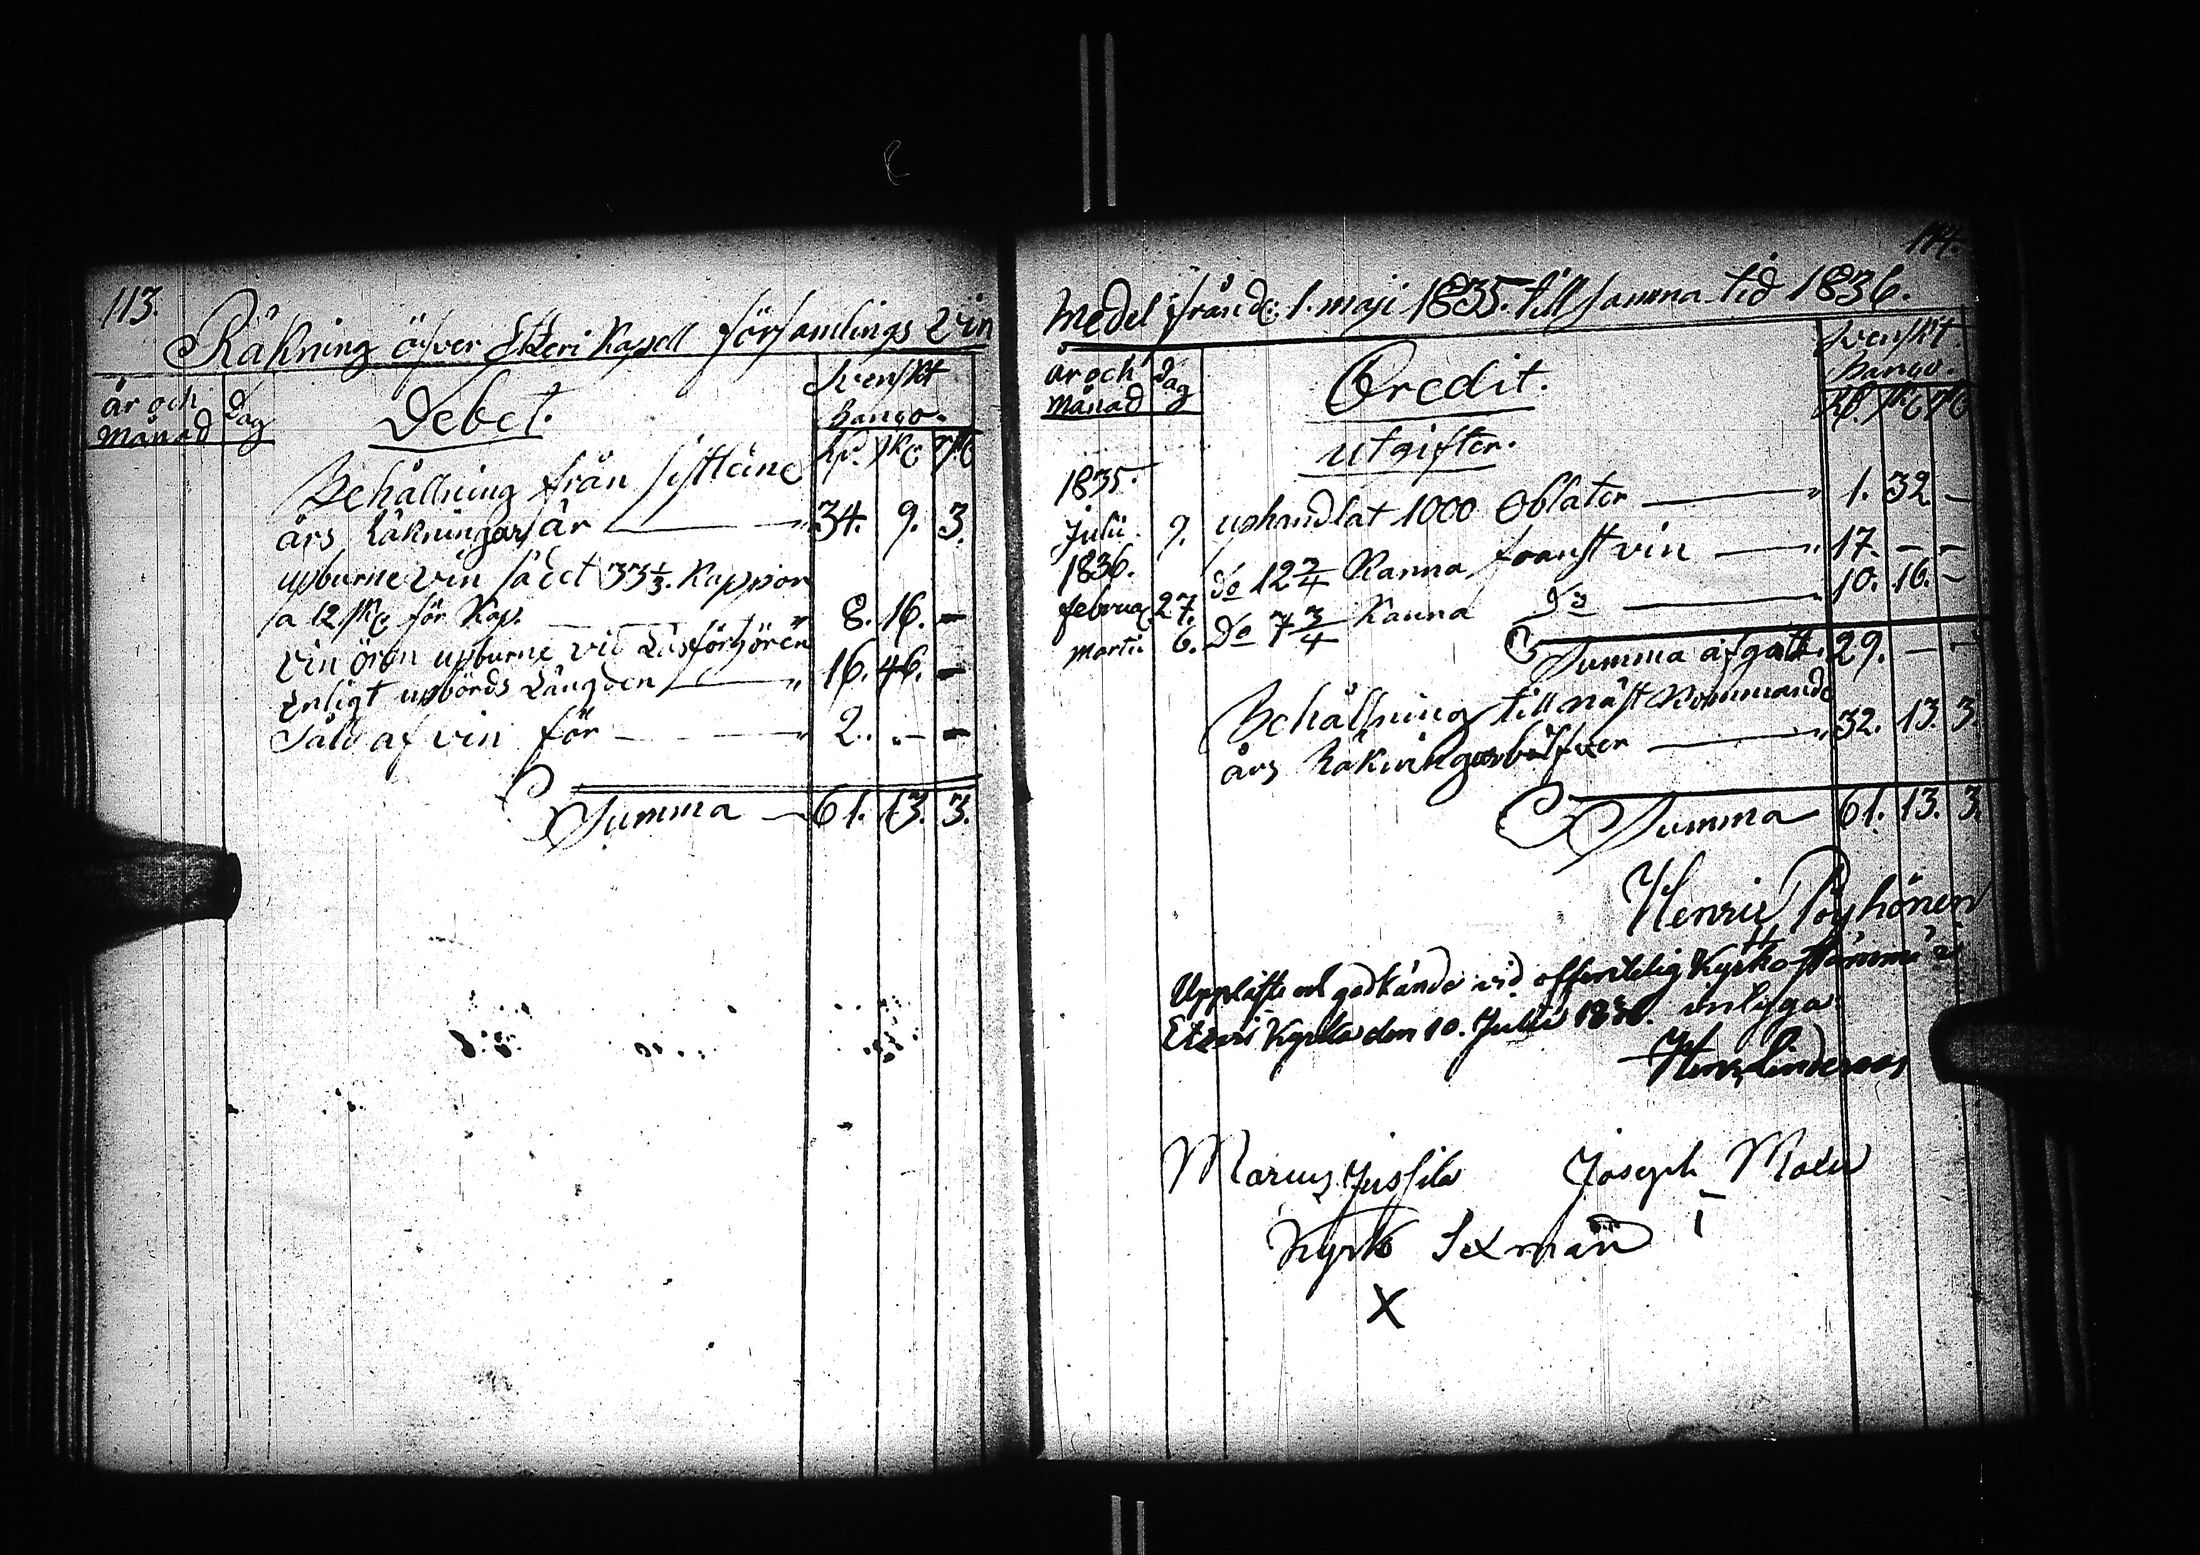 113.
Räkning öfver Etzeri Kapell församlings Vin
år och
Månad
Dag
Debet.
Svenskt
Banco.
Rd. sk. rst.
Behållning från sistledne
års Räkningar är 34. 9. 3.
upburne vin sädet 33 1/3. Kappor
a 12 sk. för Kap. 8. 16. -
vin ören upburne vid Läsförhören
Enligt upbörds Längden 16. 46. -
Såld af vin för 2. - -
Summa 61. 13. 3.
114.
Medel ifrån d: 1. maji 1835. till samma tid 1836.
år och
Månad
Dag
Credit.
Svenskt.
Banco.
Rd. sk. rst.
utgifter.
1835.
Julii 9. uphandlat 1000 Oblater 1. 32 -
1836.
februa. 27. do 12 3/4 Kanna franst vin 17. - -
Martii 6. do 7 3/4 Kanna do 10. 16. -
Summa afgått. 29. - -
Behållning till näst Kommande
års Räkningar 32. 13. 3.
Summa 61. 13. 3.
Henric Pöyhönen
Uppläste och godkände vid offentelig Kyrko stämma i
Etzeri Kyrka den 10. Julii 1836. intyga
Henr. Linderoos
Marius Jussila Joseph Mäen
Kyrko Sexmän
X